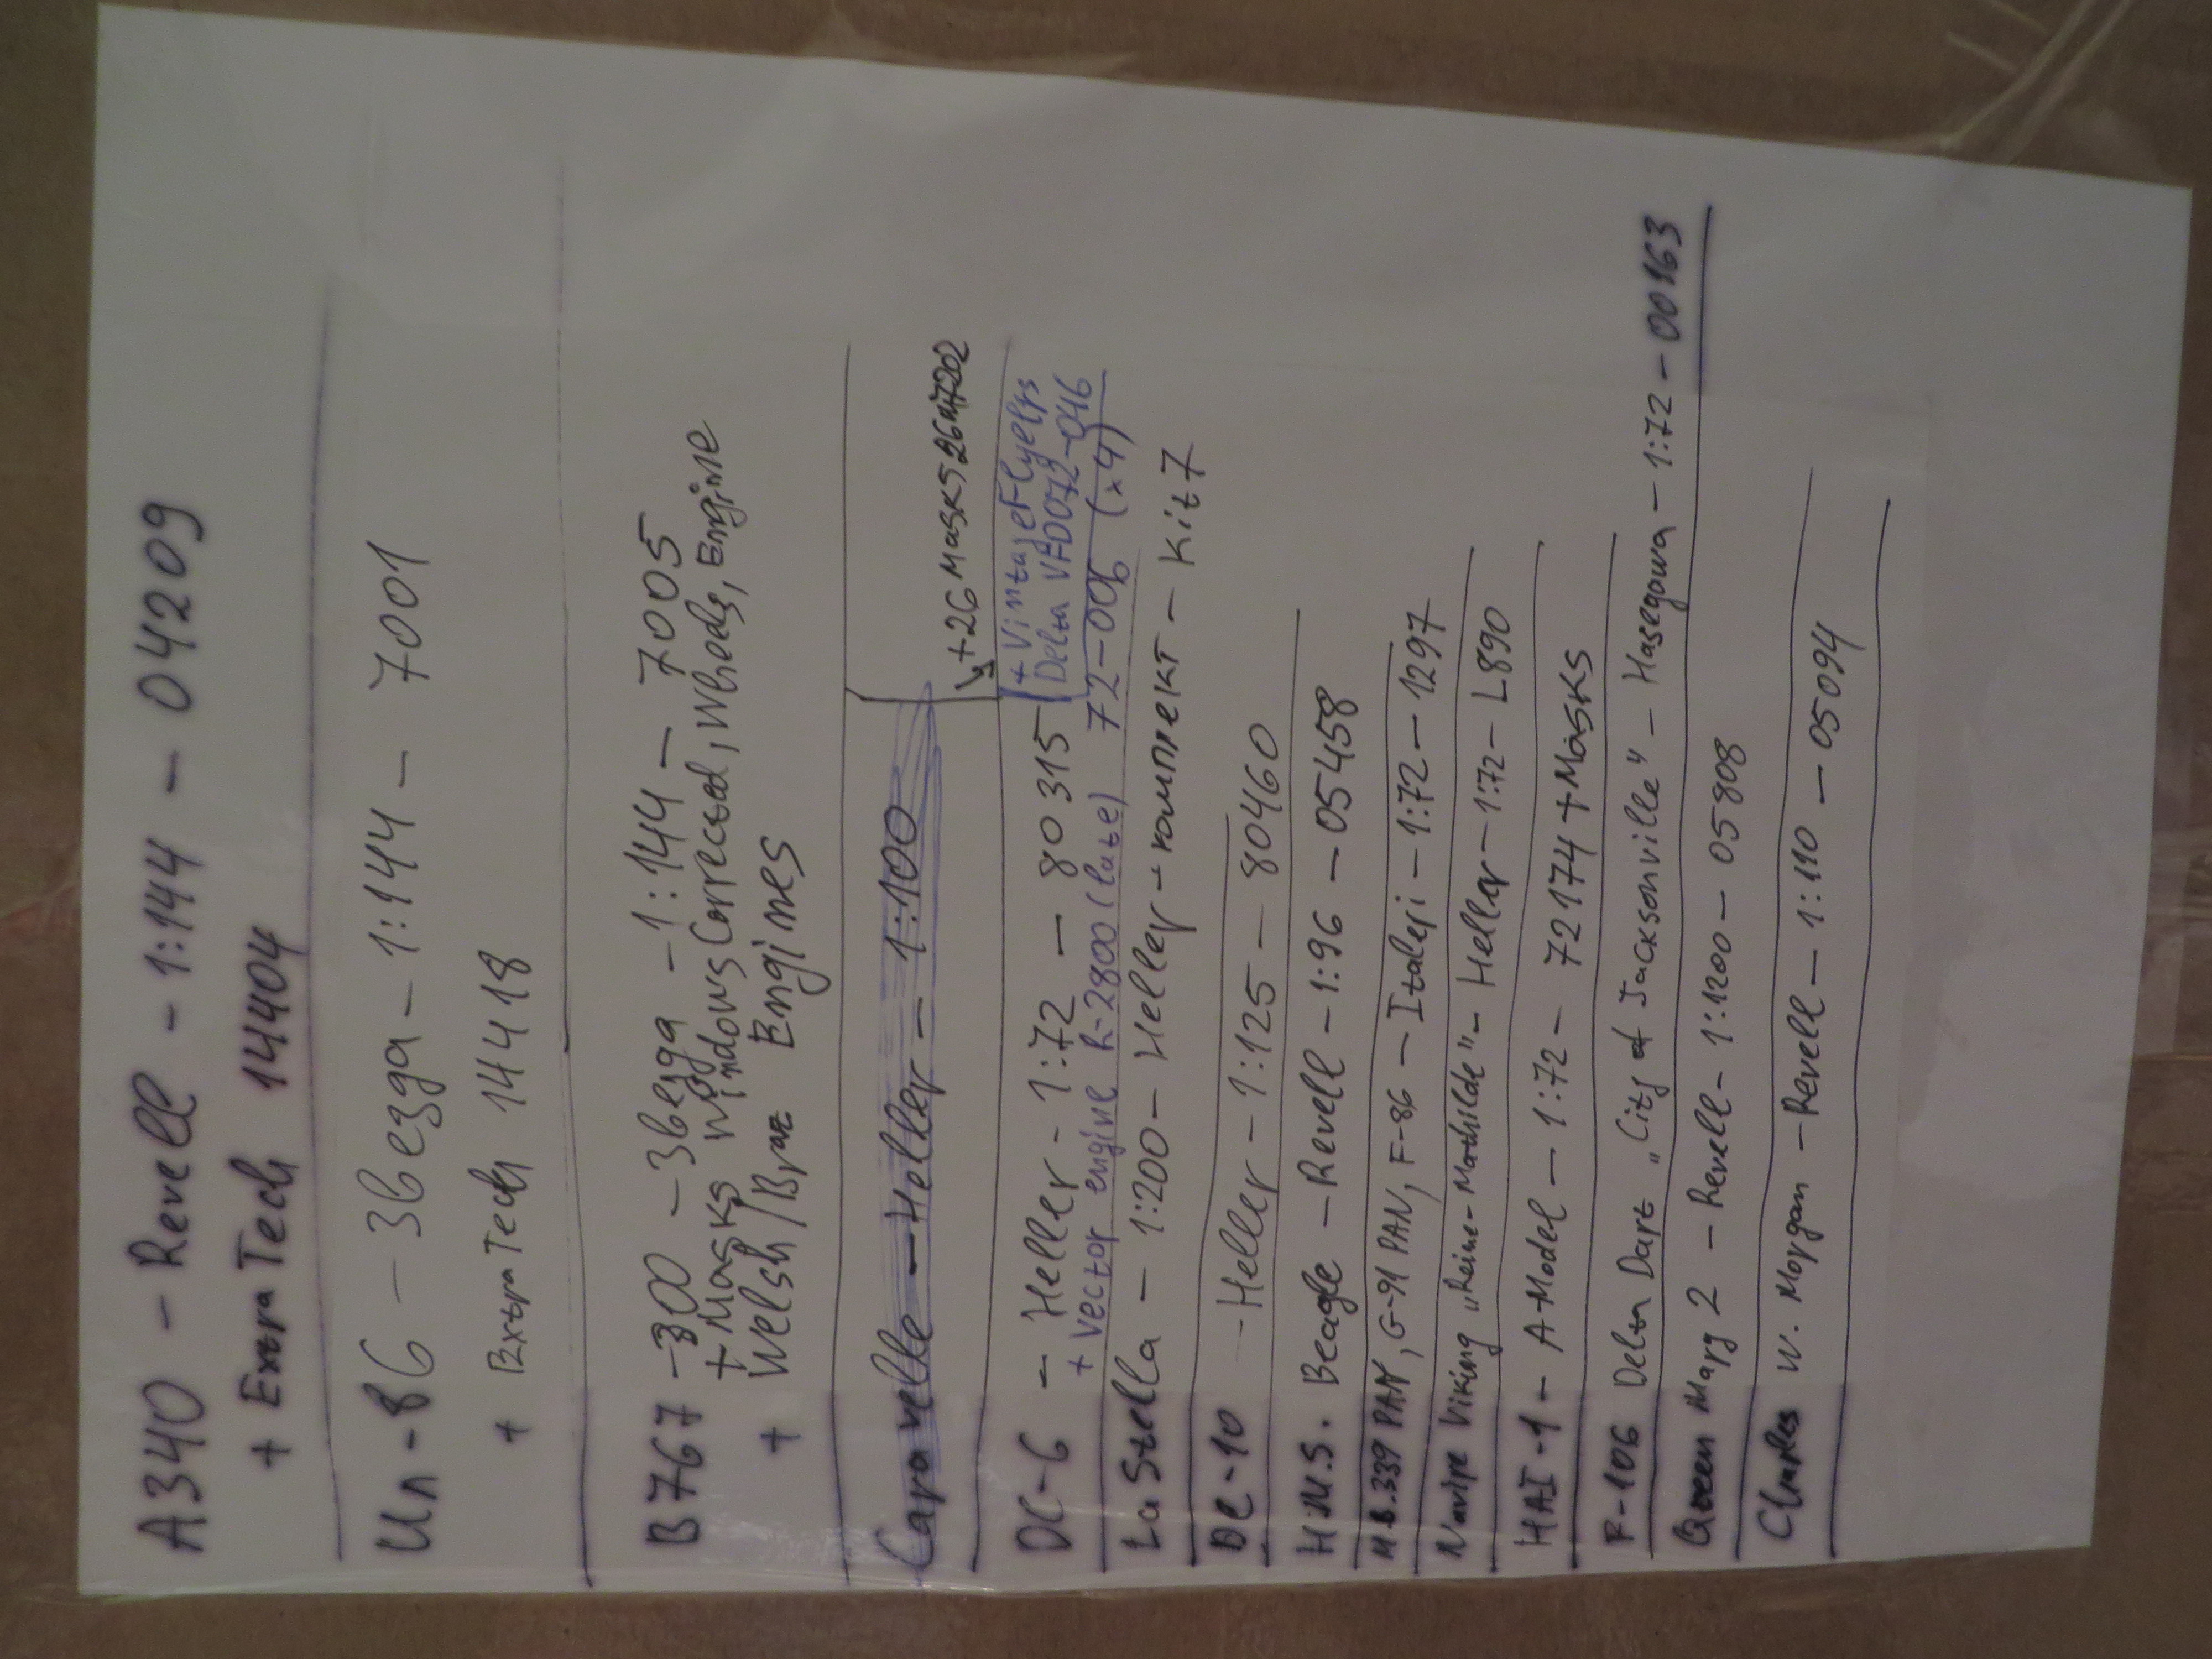 A340 – Revell – 1:144 – 04209
+ Extra Tech 14404
Ил-86 – Звезда – 1:144 – 7001
+ Extra Tech 14418
B767 -300 – Звезда – 1:144 – 7005
+ Masks Windows Corrected, Wheels, Engine
+ Welsh/Braz Engines
Caravelle – Heller – 1:100
DC-6 – Heller – 1:72 – 80315
+26 Masks
+ Vintage Flyers
Delta VFD072-046
+ Vector engine R-2800 (late) 72-006 (x4)
La Stella – 1:200 – Heller – комплект – Kit 7
DC-10 – Heller – 1:125 – 80460
H.M.S. Beagle – Revell – 1:96 – 05458
M.B.339 PAN, G-91 PAN, F-86 – Italeri – 1:72 – 1297
Navire Viking „Reine-Mathilde" – Heller – 1:72 – L890
HAI-1 – A-Model – 1:72 – 72174 + Masks
F-106 Delta Dart „City of Jacksonville" – Hasegawa – 1:72 – 00163
Queen Mary 2 – Revell – 1:1200 – 05808
Charles W. Morgan – Revell – 1:110 – 05094